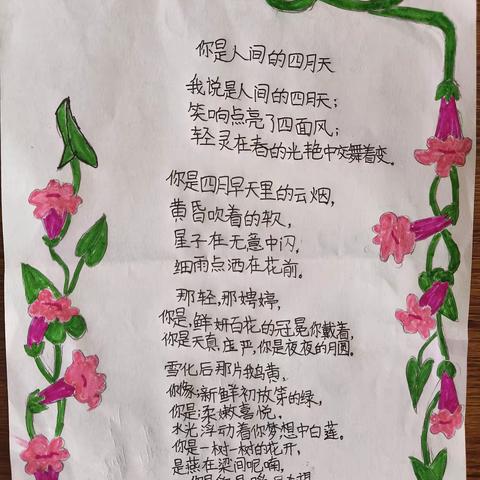 你是人间的四月天
我说是人间的四月天；
笑响点亮了四面风；
轻灵在春的光艳中交舞着变。
你是四月早天里的云烟，
黄昏吹着的软，
星子在无意中闪，
细雨点洒在花前。
那轻，那娉婷，
你是，鲜妍百花的冠冕你戴着，
你是天真，庄严，你是夜夜的月圆。
雪化后那片鹅黄，
你像；新鲜初放芽的绿，
你是；柔嫩喜悦，
水光浮动着你梦想中白莲。
你是一树一树的花开，
是燕在梁间呢喃，